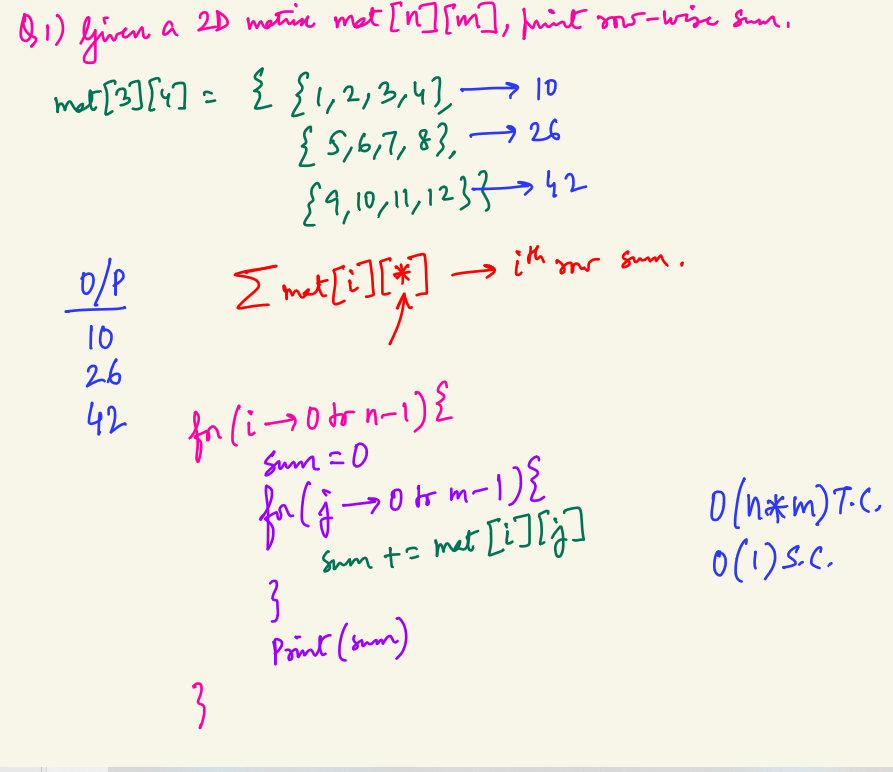 Q1) Given a 2D matrix mat[n][m], print row-wise sum.
mat[3][4] = { {1,2,3,4}, → 10
{5,6,7,8}, → 26
{9,10,11,12}} → 42
O/P
10
26
42
∑ mat[i][*] → ith row sum.
for(i → 0 to n-1){
sum = 0
for(j → 0 to m-1){
sum += mat[i][j]
}
Print(sum)
}
O(n*m) T.C.
O(1) S.C.